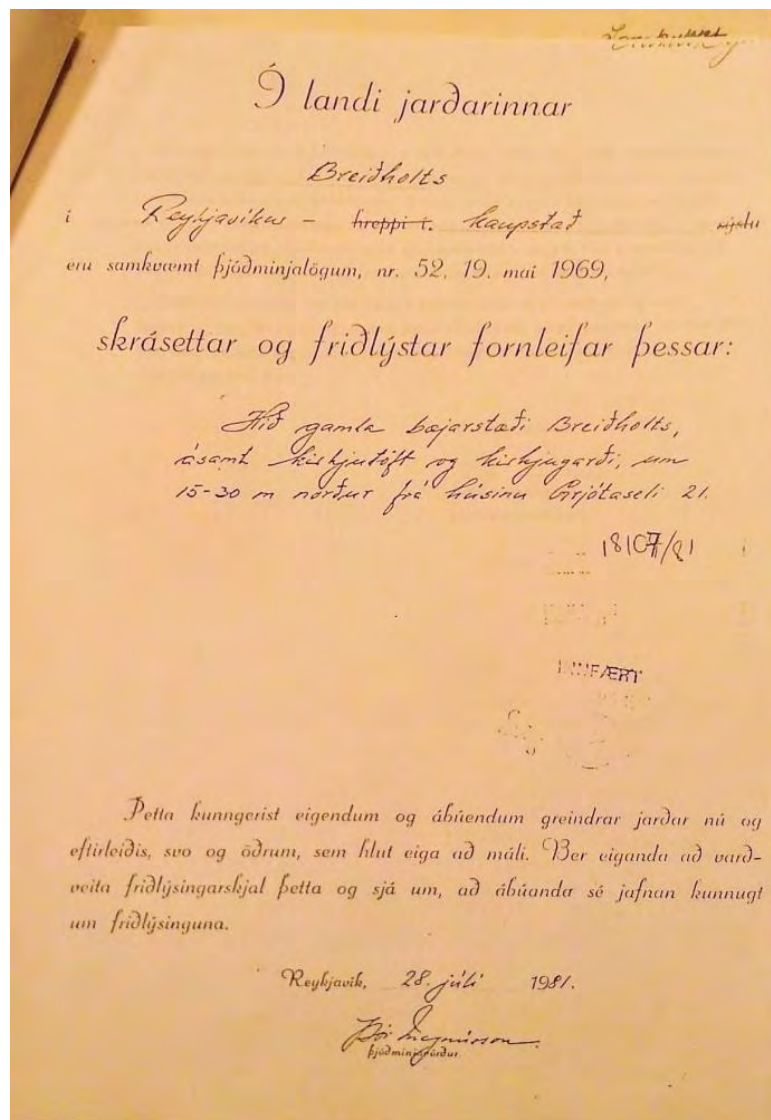 Í landi jarðarinnar
Breiðholts
í Reykjavíkur - hreppi í. kaupstað sýslu
eru samkvæmt þjóðminjalögum, nr. 52, 19. maí 1969,
skrásettar og friðlýstar fornleifar þessar:
Hið gamla bæjarstæði Breiðholts,
ásamt kirkjutóft og kirkjugarði, um
15-30 m norður frá húsinu Grjótaseli 21.
18107/81
INNFÆRT
Þetta kunngerist eigendum og ábúendum greindrar jarðar nú og
eftirleiðis, svo og öðrum, sem hlut eiga að máli. Ber eiganda að varð-
veita friðlýsingarskjal þetta og sjá um, að ábúanda sé jafnan kunnugt
um friðlýsinguna.
Reykjavík, 28. júlí 1981.
Þór Magnússon
þjóðminjavörður.